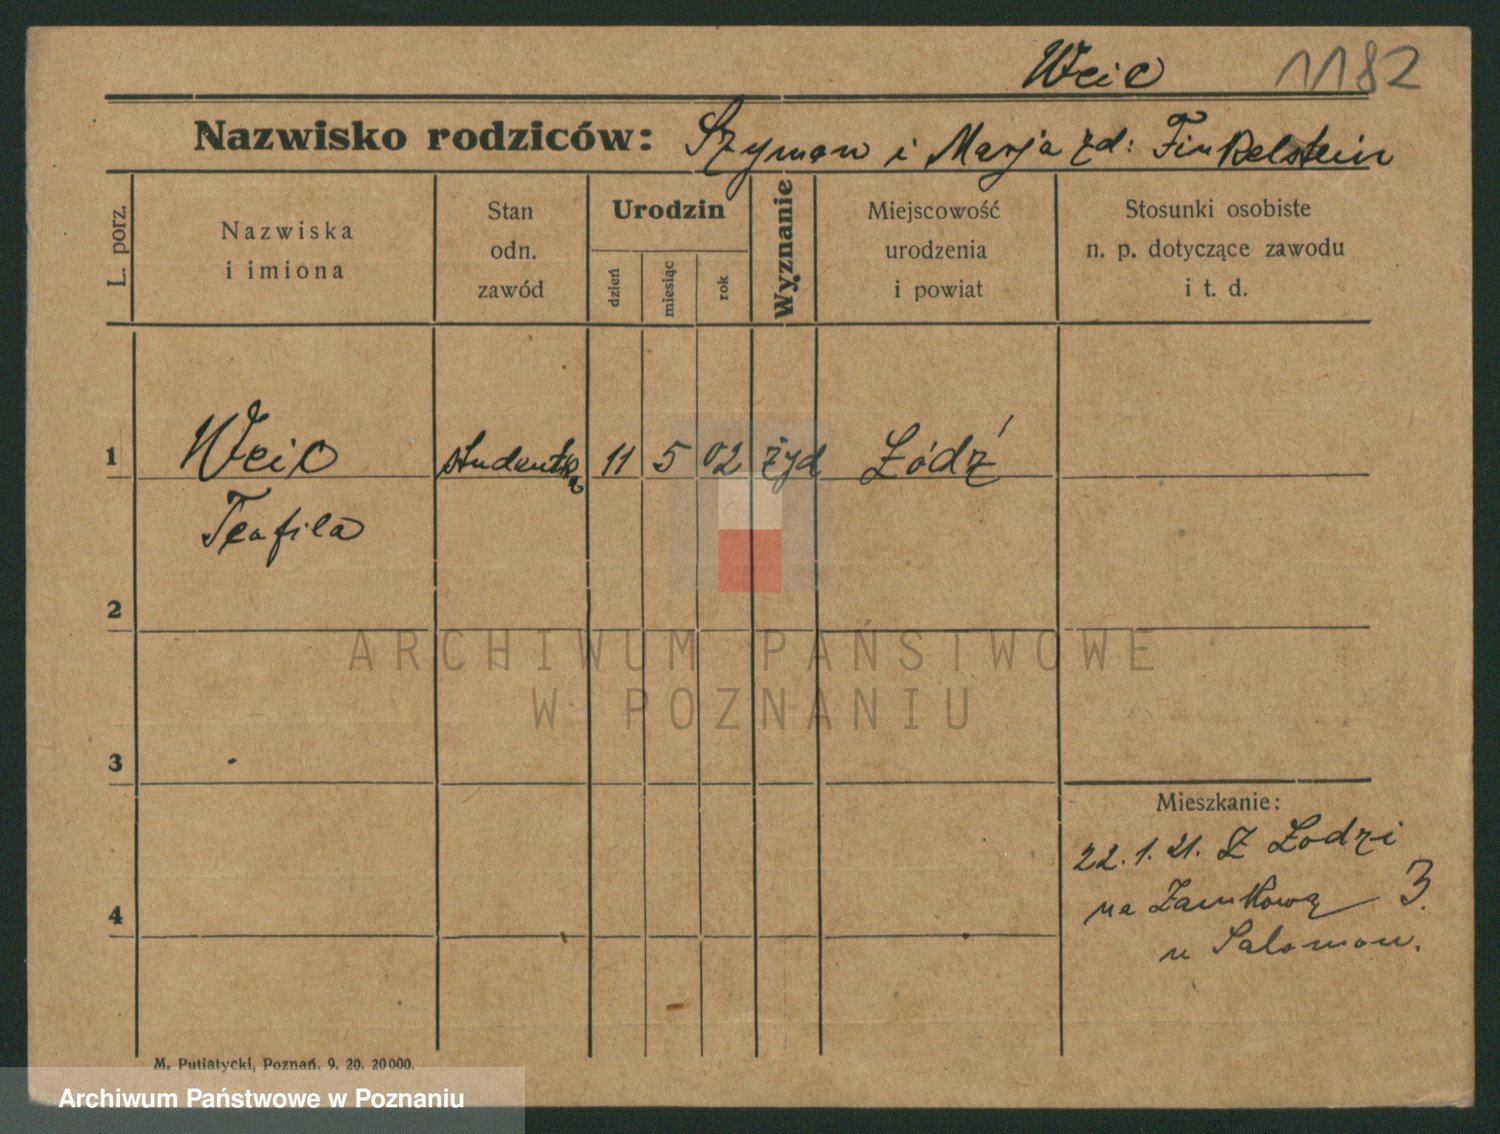 Weic 1182
Nazwisko rodziców: Szymon i Marja zd: Finkelstein
L. porz.
Nazwiska
i imiona
Stan
odn.
zawód
Urodzin
dzień
miesiąc
rok
Wyznanie
Miejscowość
urodzenia
i powiat
Stosunki osobiste
n. p. dotyczące zawodu
i t. d.
1 Weic studentka 11 5 02 żyd Łódź
Teofila
2
ARCHIWUM PAŃSTWOWE
W POZNANIU
3
Mieszkanie:
22.1.21. Z Łodzi
na Zamkową 3.
u Salomon.
4
M. Putiatycki, Poznań. 9. 20. 20000.
Archiwum Państwowe w Poznaniu